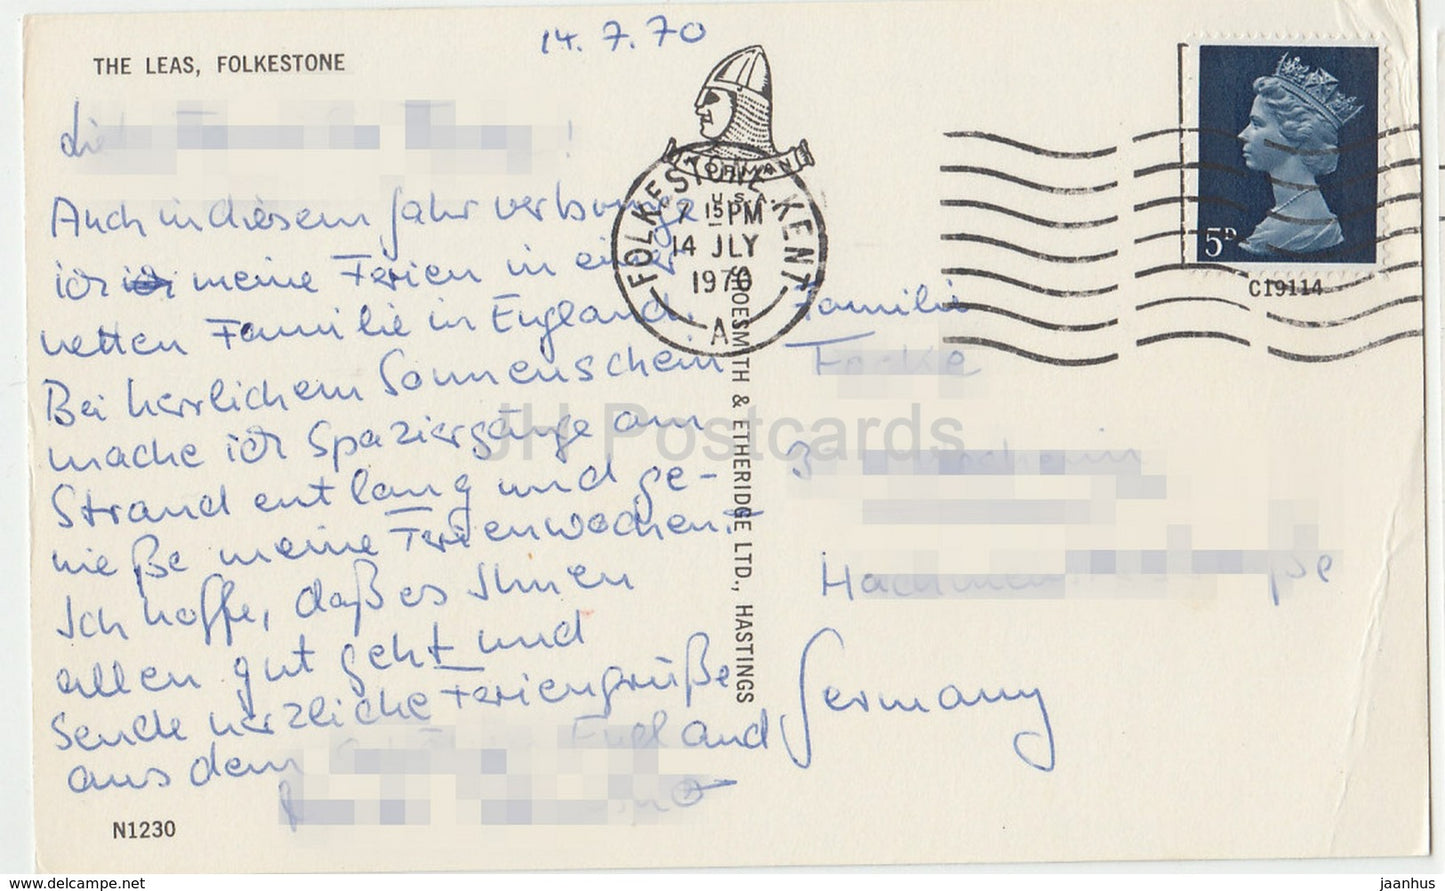 14.7.70
THE LEAS, FOLKESTONE
Auch in diesem Jahr verbringe
ich meine Ferien in einer
netten Familie in England.
Bei herrlichem Sonnenschein
mache ich Spaziergänge am
Strand entlang und ge-
nieße meine Ferienwochen.
Ich hoffe, daß es Ihnen
allen gut geht und
sende herzliche Feriengrüße
aus dem
England
N1230
NORMAN
U.S.A.
FOLKESTONE KENT
7 15 PM
14 JLY
1970
A
SHOESMITH & ETHERIDGE LTD., HASTINGS
5D
C19114
Familie
Germany
JH Postcards
www.delcampe.net
jaanhus